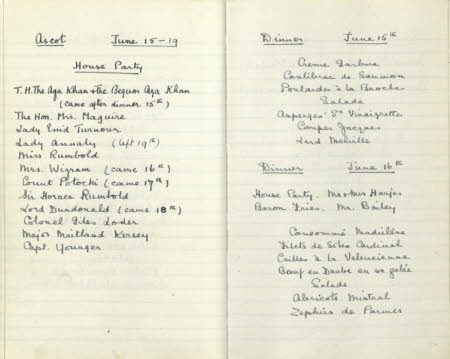 Ascot June 15-19
House Party
T.H. The Aga Khan & the Begum Aga Khan
(came after dinner 15th)
The Hon. Mrs. Maguire
Lady Enid Turnour
Lady Annaly (left 19th)
Miss Rumbold
Mrs. Wigram (came 16th)
Count Potocki (came 17th)
Sir Horace Rumbold
Lord Dundonald (came 18th)
Colonel Giles Loder
Major Maitland Kersey
Capt. Younger
Dinner June 15th
Creme Darbure
Coulibrac de Saumon
Poularde à la Broche
Salade
Asperges Vinaigrette
Coupes Jacques
Lard Melville
Dinner June 16th
House Party. Mr & Mrs Harjes
Baron Fries. Mr. Bailey
Consommé Madrilène
Filets de Soles Cardinal
Cailles à la Valencienne
Boeuf en Daube en sa gelée
Salade
Abricots Mistral
Zephirs de Parmes